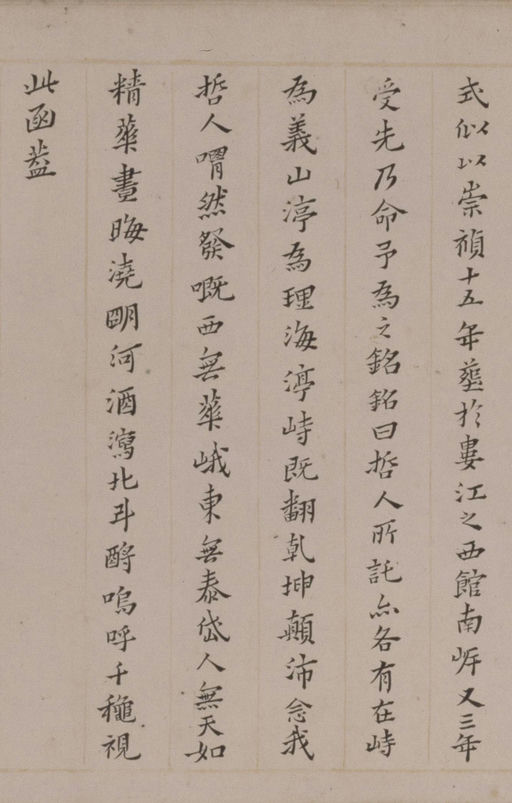 式似以崇禎十五年葬於婁江之西館南岸又三年
受先乃命予為之銘銘曰哲人所託亦各有在峙
為義山渟為理海渟峙既翻乾坤顛沛念我
哲人喟然發嘅西無華峨東無泰岱人無天如
精華晝晦澆明河酒瀉北斗酹嗚呼千穐視
此函葢